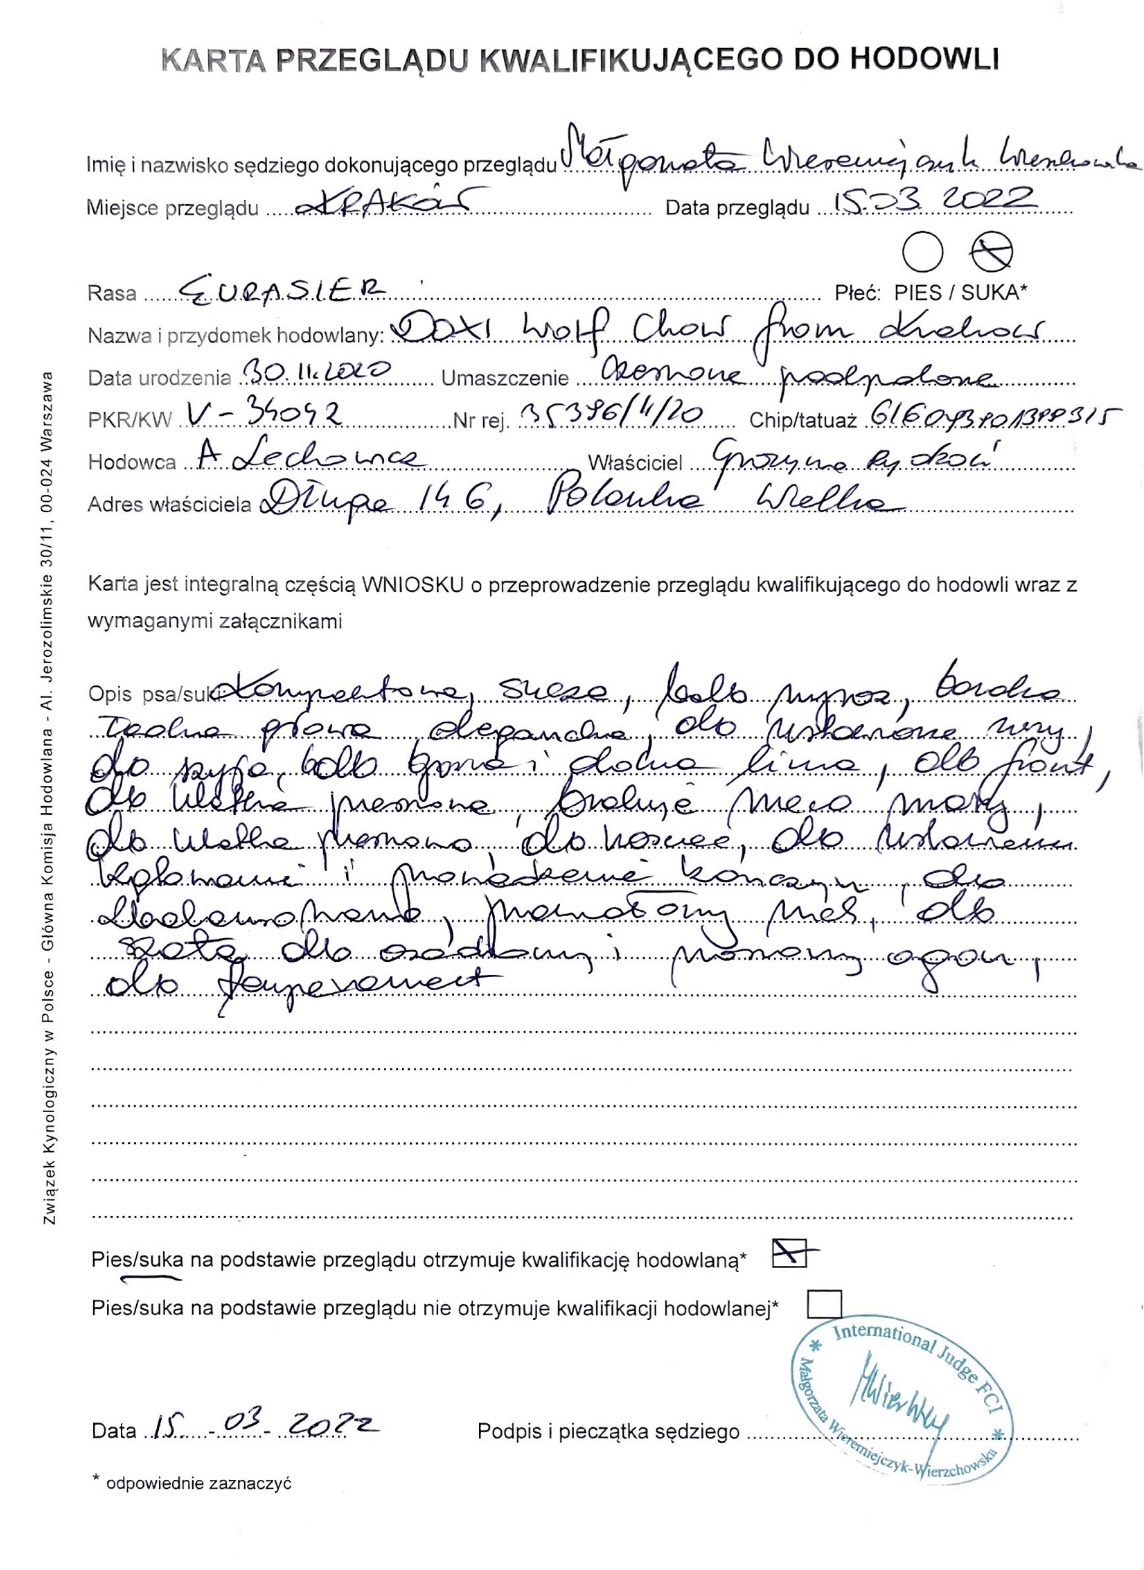 KARTA PRZEGLĄDU KWALIFIKUJĄCEGO DO HODOWLI
Imię i nazwisko sędziego dokonującego przeglądu Małgorzata Wieremiejczyk Wierzchowska
Miejsce przeglądu KRAKÓW Data przeglądu 15.03.2022
Rasa EURASIER Płeć: PIES / SUKA*
Nazwa i przydomek hodowlany: DOXI Wolf Chow from Krakow
Data urodzenia 30.11.2020 Umaszczenie Czarne podpalane
PKR/KW V-34042 Nr rej. 35396/4/20 Chip/tatuaż
Hodowca A Lechowicz Właściciel Grażyna
Adres właściciela Długa 146, Polanka Wielka
Karta jest integralną częścią WNIOSKU o przeprowadzenie przeglądu kwalifikującego do hodowli wraz z
wymaganymi załącznikami
Opis psa/suki Kompaktowa, sucza, bdb wyraz, bardzo
ładna głowa elegancka, db ustawione uszy,
db szyja, bdb górna i dolna linia, db front,
db klatka piersiowa, brakuje
db klatka piersiowa, db kości, db ustawienie
kątowanie i prowadzenie kończyn, db
db
szata, db osadzony i noszony ogon,
db temperament
Pies/suka na podstawie przeglądu otrzymuje kwalifikację hodowlaną*
Pies/suka na podstawie przeglądu nie otrzymuje kwalifikacji hodowlanej*
International Judge FCI
Małgorzata Wieremiejczyk-Wierzchowska
Data 15.-03.-2022 Podpis i pieczątka sędziego
* odpowiednie zaznaczyć
Związek Kynologiczny w Polsce - Główna Komisja Hodowlana - Al. Jerozolimskie 30/11, 00-024 Warszawa